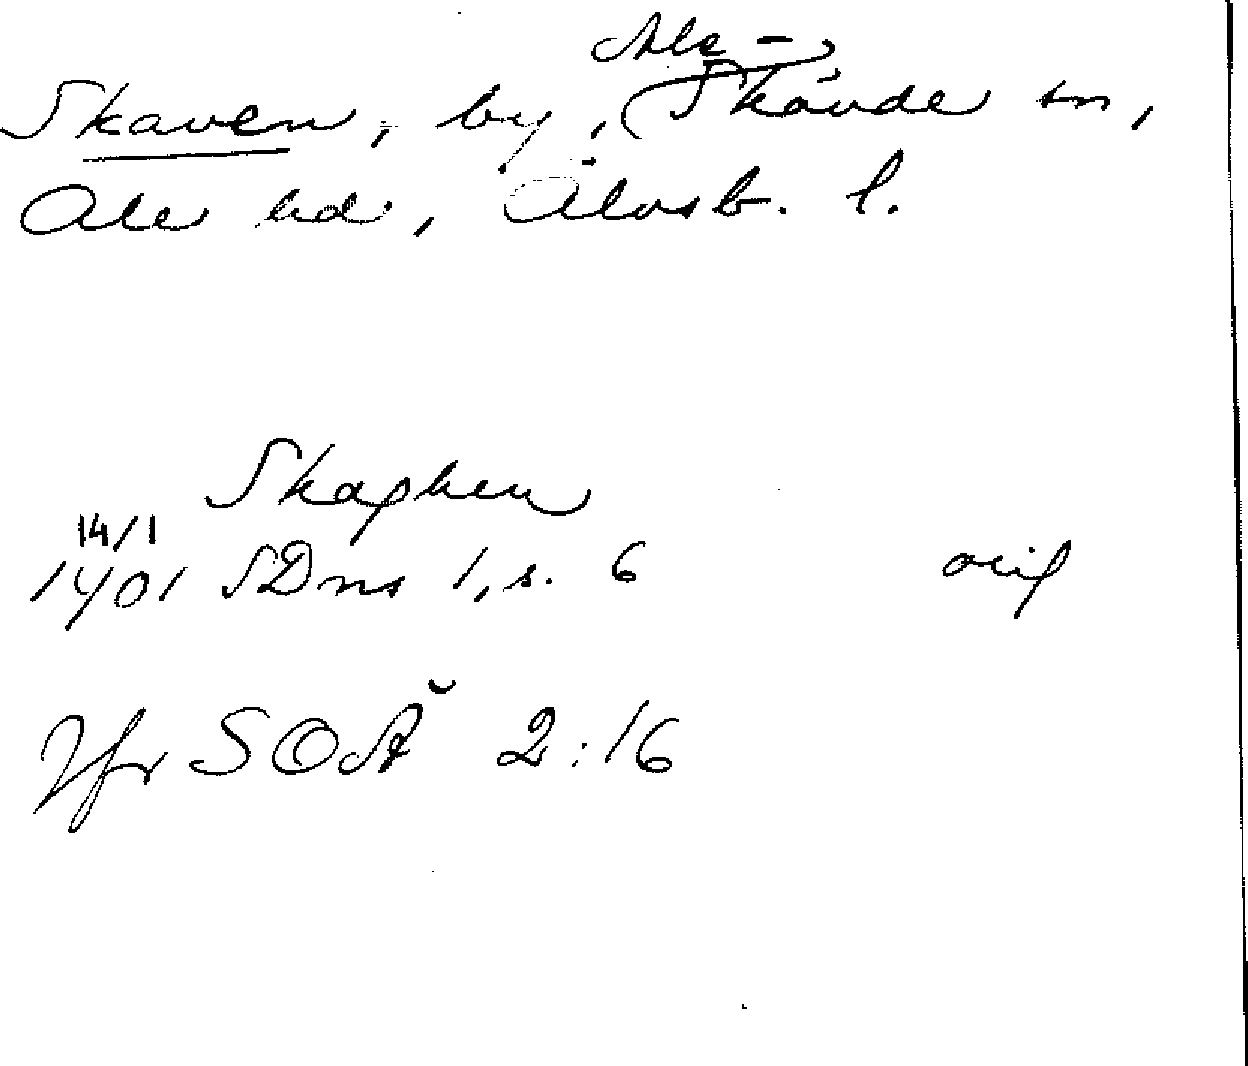 Ale-
Skaven, by, Skövde sn,
Ale hd, Älvsb. l.
Skaphen
14/1
1401 SDns 1, s. 6 orig
Jfr SOÄ 2:16